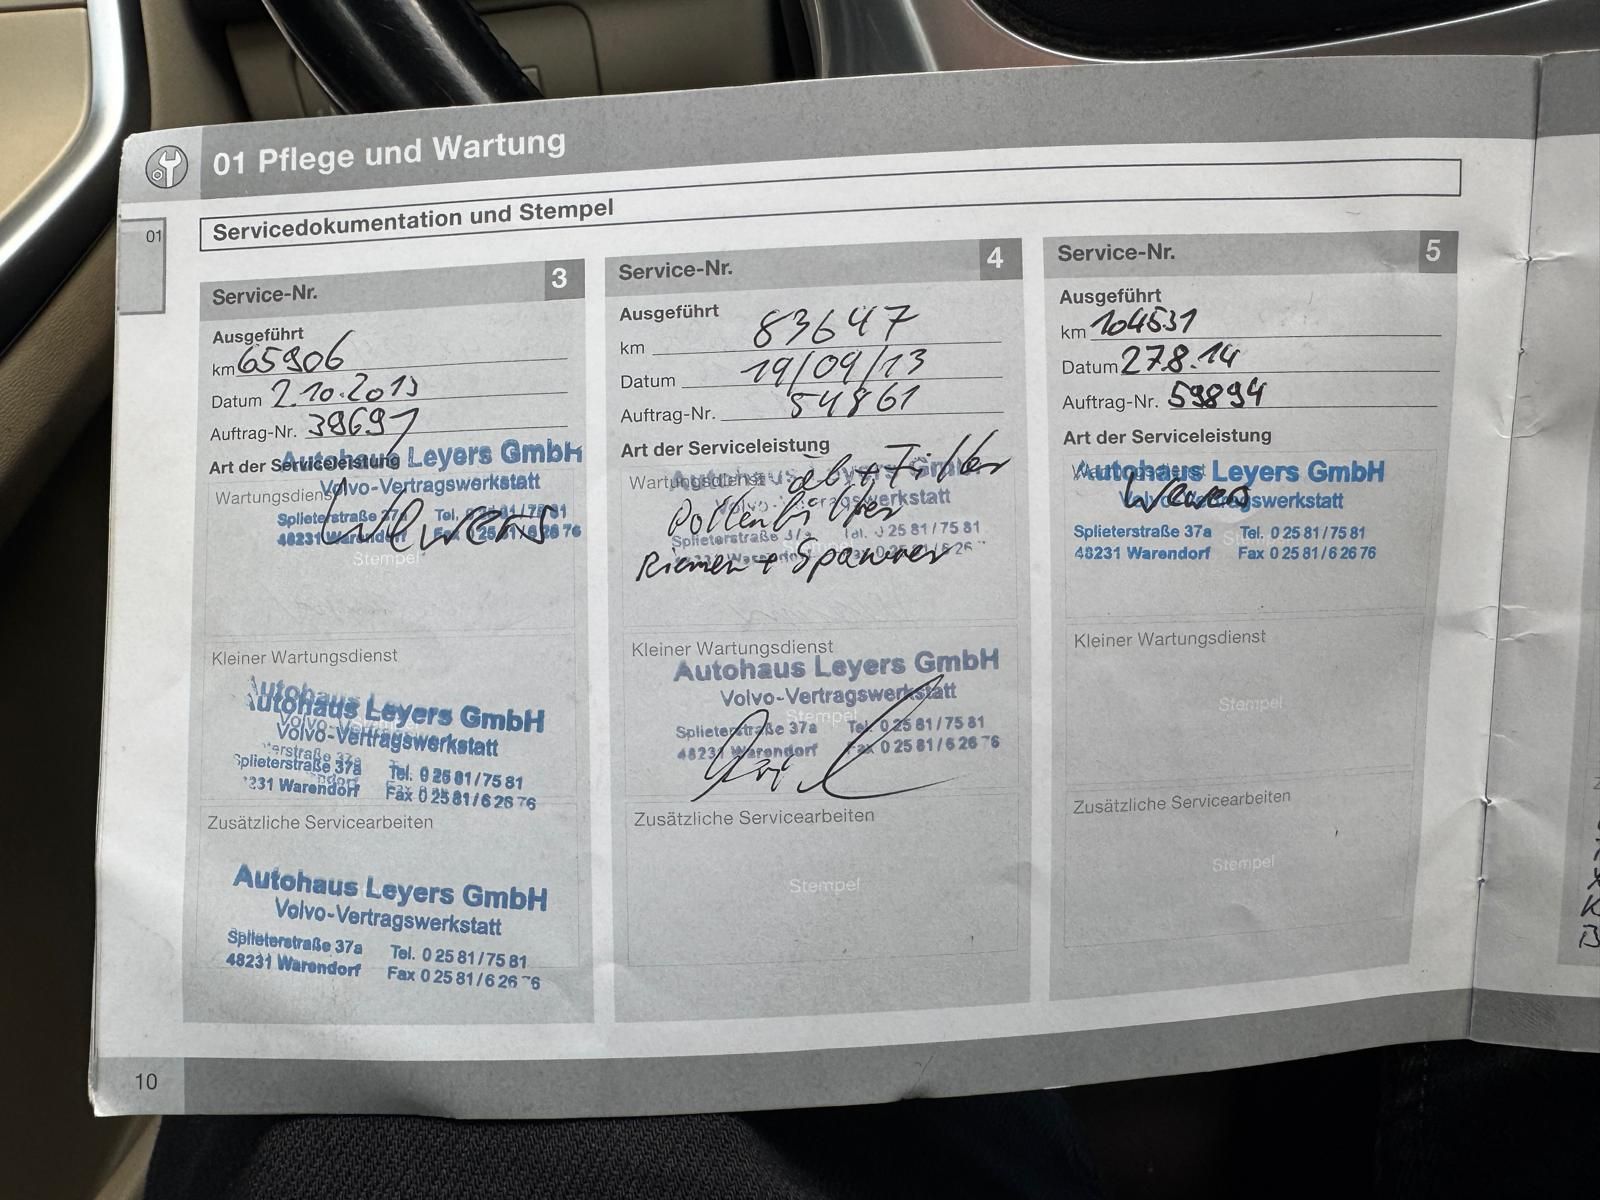 01 Pflege und Wartung
01
Servicedokumentation und Stempel
Service-Nr. 3
Ausgeführt
km 65906
Datum 2.10.2013
Auftrag-Nr. 39691
Art der Serviceleistung
Autohaus Leyers GmbH
Wartungsdienst
Volvo-Vertragswerkstatt
Splieterstraße 37a Tel. 0 25 81/75 81
48231 Warendorf Fax 0 25 81/6 26 76
Wewers
Stempel
Kleiner Wartungsdienst
Autohaus Leyers GmbH
Volvo-Vertragswerkstatt
Splieterstraße 37a Tel. 0 25 81/75 81
48231 Warendorf Fax 0 25 81/6 26 76
Zusätzliche Servicearbeiten
Autohaus Leyers GmbH
Volvo-Vertragswerkstatt
Splieterstraße 37a Tel. 0 25 81/75 81
48231 Warendorf Fax 0 25 81/6 26 76
Service-Nr. 4
Ausgeführt
km 83647
Datum 19/09/13
Auftrag-Nr. 54861
Art der Serviceleistung
Autohaus Leyers GmbH
Wartungsdienst öl+Filter
Volvo-Vertragswerkstatt
Pollenfilter
Splieterstraße 37a Tel. 0 25 81/75 81
Riemen + Spanner
Kleiner Wartungsdienst
Autohaus Leyers GmbH
Volvo-Vertragswerkstatt
Stempel
Splieterstraße 37a Tel. 0 25 81/75 81
48231 Warendorf Fax 0 25 81/6 26 76
Zusätzliche Servicearbeiten
Stempel
Service-Nr. 5
Ausgeführt
km 104531
Datum 27.8.14
Auftrag-Nr. 59894
Art der Serviceleistung
Wartungsdienst
Autohaus Leyers GmbH
Volvo-Vertragswerkstatt
Wewers
Splieterstraße 37a Tel. 0 25 81/75 81
48231 Warendorf Fax 0 25 81/6 26 76
Kleiner Wartungsdienst
Stempel
Zusätzliche Servicearbeiten
Stempel
10